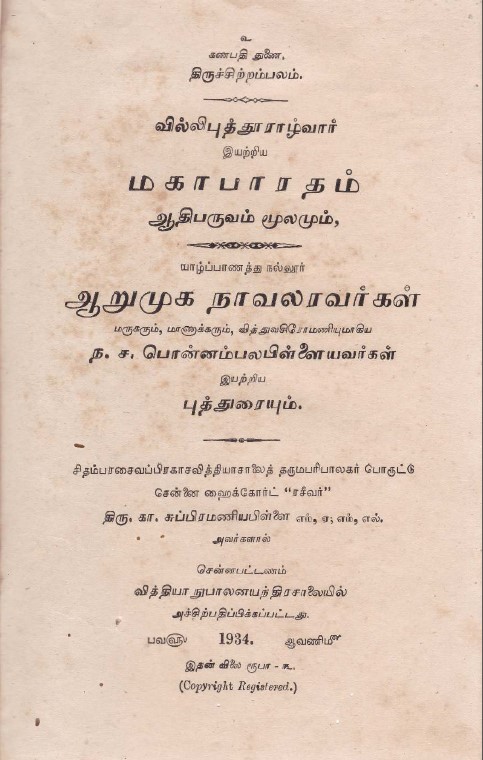 உ
கணபதி துணை.
திருச்சிற்றம்பலம்.
வில்லிபுத்தூராழ்வார்
இயற்றிய
மகாபாரதம்
ஆதிபருவம் மூலமும்,
யாழ்ப்பாணத்து நல்லூர்
ஆறுமுக நாவலரவர்கள்
மருகரும், மாணாக்கரும், வித்துவசிரோமணியுமாகிய
ந. ச. பொன்னம்பலபிள்ளையவர்கள்
இயற்றிய
புத்துரையும்.
சிதம்பரசைவப்பிரகாசவித்தியாசாலைத் தருமபரிபாலகர் பொருட்டு
சென்னை ஹைக்கோர்ட் “ரசீவர்”
திரு. கா. சுப்பிரமணியபிள்ளை எம், ஏ; எம், எல்.
அவர்களால்
சென்னபட்டணம்
வித்தியாநுபாலனயந்திரசாலையில்
அச்சிற்பதிப்பிக்கப்பட்டது.
பவ௵ 1934. ஆவணி௴
இதன் விலை ரூபா -
(Copyright Registered.)